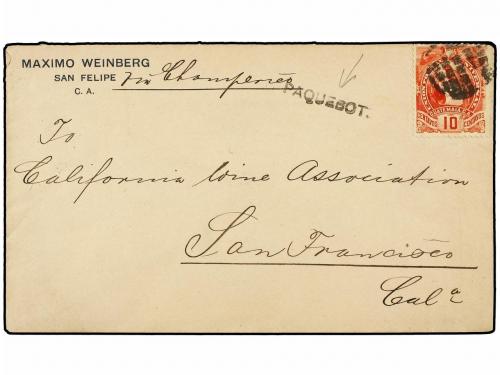 MAXIMO WEINBERG
SAN FELIPE via Champerico
C. A.
PAQUEBOT.
GUATEMALA
CENTAVOS 10 CENTAVOS
To
California Wine Association
San Francisco
Calª